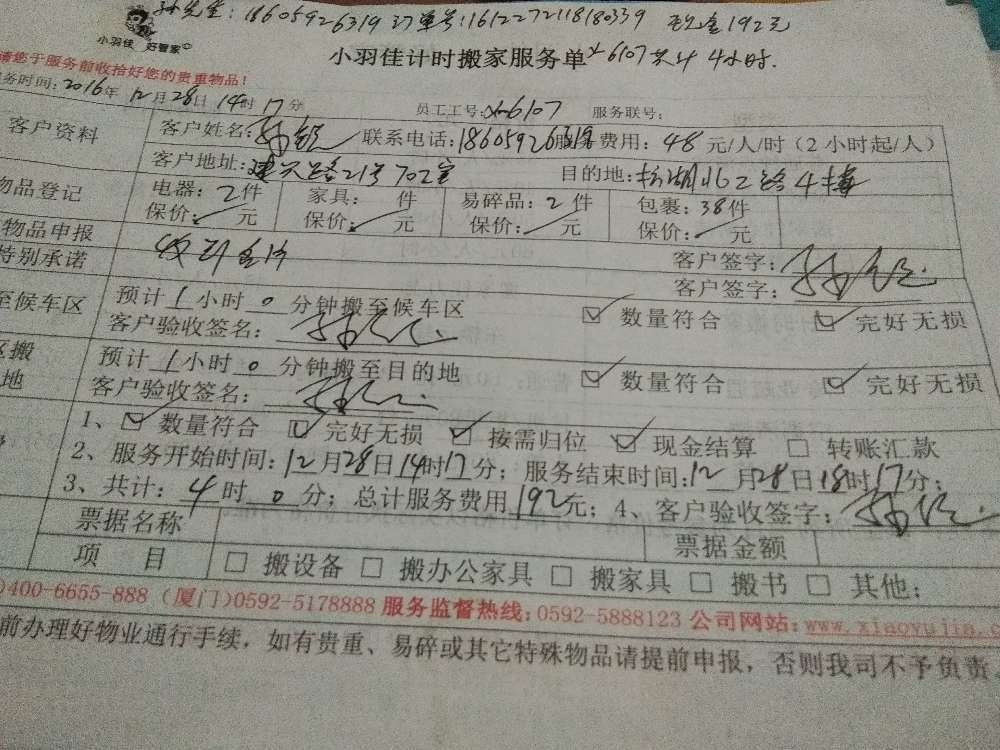 孙先生:18605926319 订单号:1612272118180339 现金192元
小羽佳 好管家
小羽佳计时搬家服务单 X-6107 共计 4小时.
请您于服务前收拾好您的贵重物品!
务时间:2016年12月28日14时17分 员工工号:X-6107 服务联号:
客户资料 客户姓名: 联系电话:18605926319 服务费用:48元/人/时(2小时起/人)
客户地址:建兴路21号702室 目的地:杨湖北二路4楼
物品登记 电器:2件 家具: 件 易碎品:2件 包裹:38件
保价: 元 保价: 元 保价: 元 保价: 元
物品申报 客户签字:
特别承诺 客户签字:
至候车区 预计1小时0分钟搬至候车区 ☑ 数量符合 ☑ 完好无损
客户验收签名:
区搬 预计1小时0分钟搬至目的地 ☑ 数量符合 ☑ 完好无损
地 客户验收签名:
1、☑ 数量符合 ☑ 完好无损 ☑ 按需归位 ☑ 现金结算 □ 转账汇款
2、服务开始时间:12月28日14时17分;服务结束时间:12月28日18时17分;
3、共计:4时0分;总计服务费用192元;4、客户验收签字:
票据名称 票据金额
项 目 □ 搬设备 □ 搬办公家具 □ 搬家具 □ 搬书 □ 其他:
)400-6655-888 (厦门)0592-5178888 服务监督热线:0592-5888123 公司网站:www.xiaoyujia.c
前办理好物业通行手续,如有贵重、易碎或其它特殊物品请提前申报,否则我司不予负责